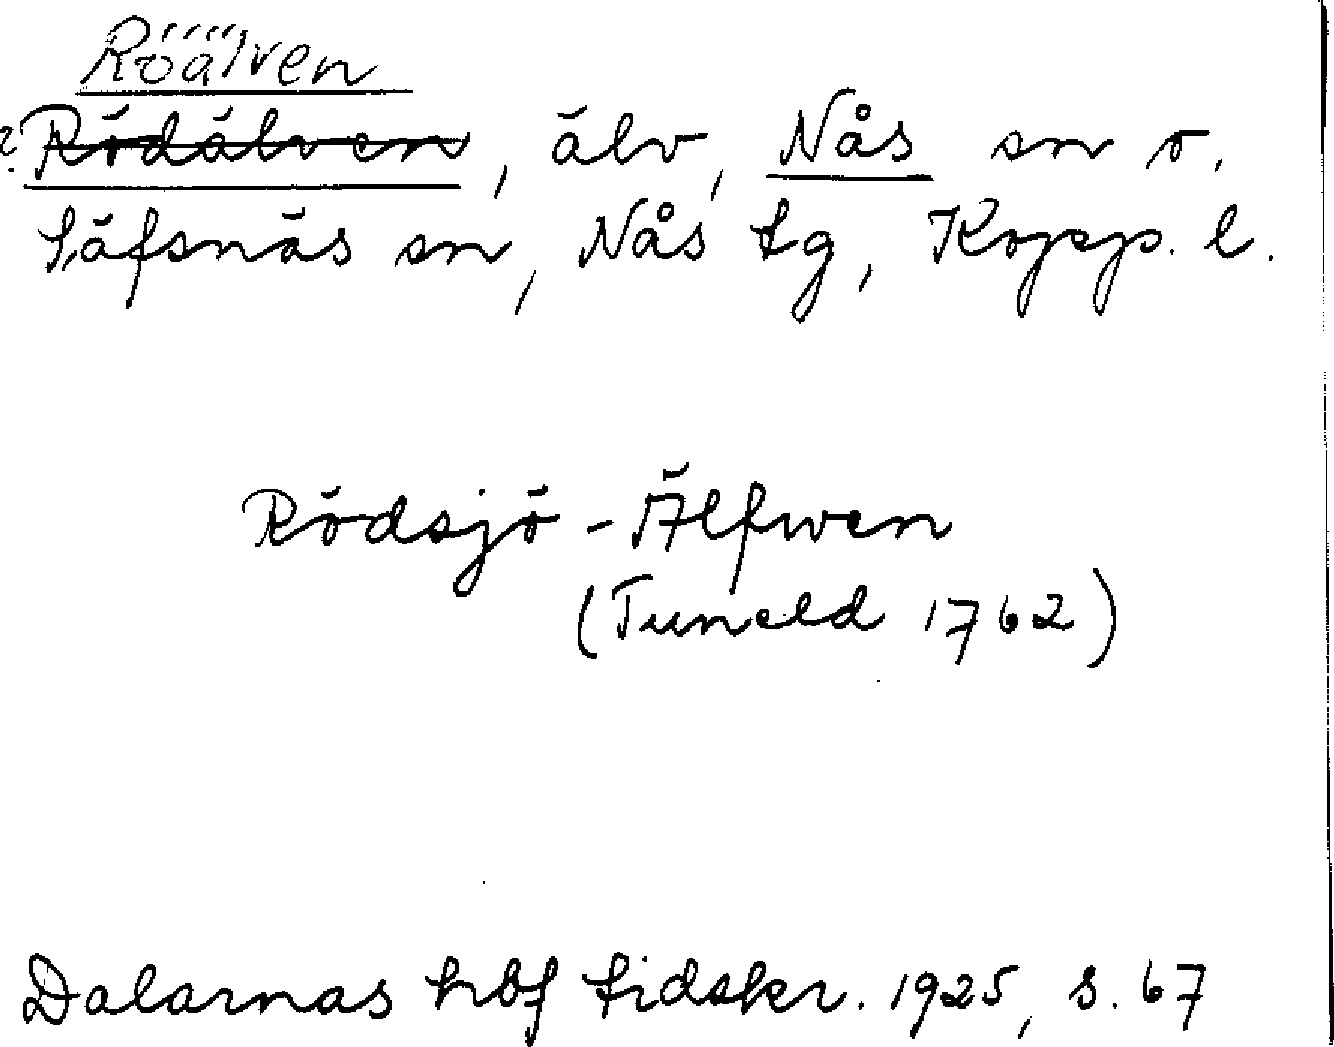 Röälven
? Rödälven, älv, Nås sn o.
Säfsnäs sn, Nås tg, Kopp. l.
Rödsjö-Älfwen
(Tuneld 1762)
Dalarnas hbf tidskr. 1925, s. 67